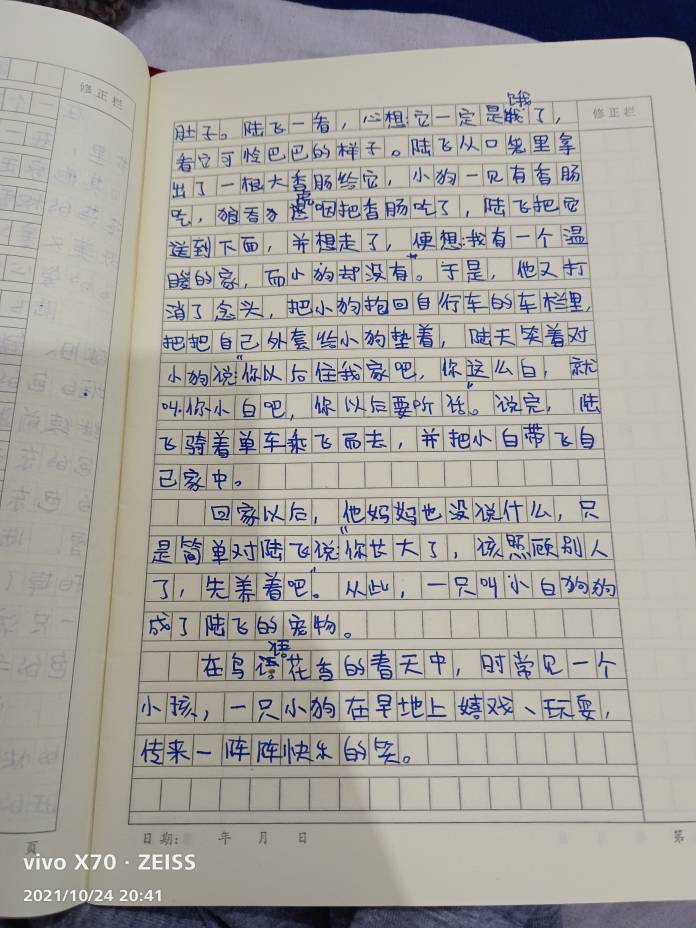 修正栏
修正栏
饿
肚子。陆飞一看，心想:它一定是饿了，
看它可怜巴巴的样子。陆飞从口袋里拿
出了一根大香肠给它，小狗一见有香肠
吃，狼吞虎咽把香肠吃了，陆飞把它
送到下面，并想走了，便想:我有一个温
暖的家，而小狗却没有"。于是，他又打
消了念头，把小狗抱回自行车的车栏里，
把把自己外套给小狗垫着，陆天笑着对
小狗说:"你以后住我家吧，你这么白，就
叫你小白吧，你以后要听话"。说完，陆
飞骑着单车乘飞而去，并把小白带飞自
己家中。
回家以后，他妈妈也没说什么，只
是简单对陆飞说:"你长大了，该照顾别人
了，先养着吧"。从此，一只叫小白狗狗
成了陆飞的宠物。
语
在鸟语花香的春天中，时常见一个
小孩，一只小狗在草地上嬉戏、玩耍，
传来一阵阵快乐的笑。
日期: 年 月 日
第
页
vivo X70 · ZEISS
2021/10/24 20:41